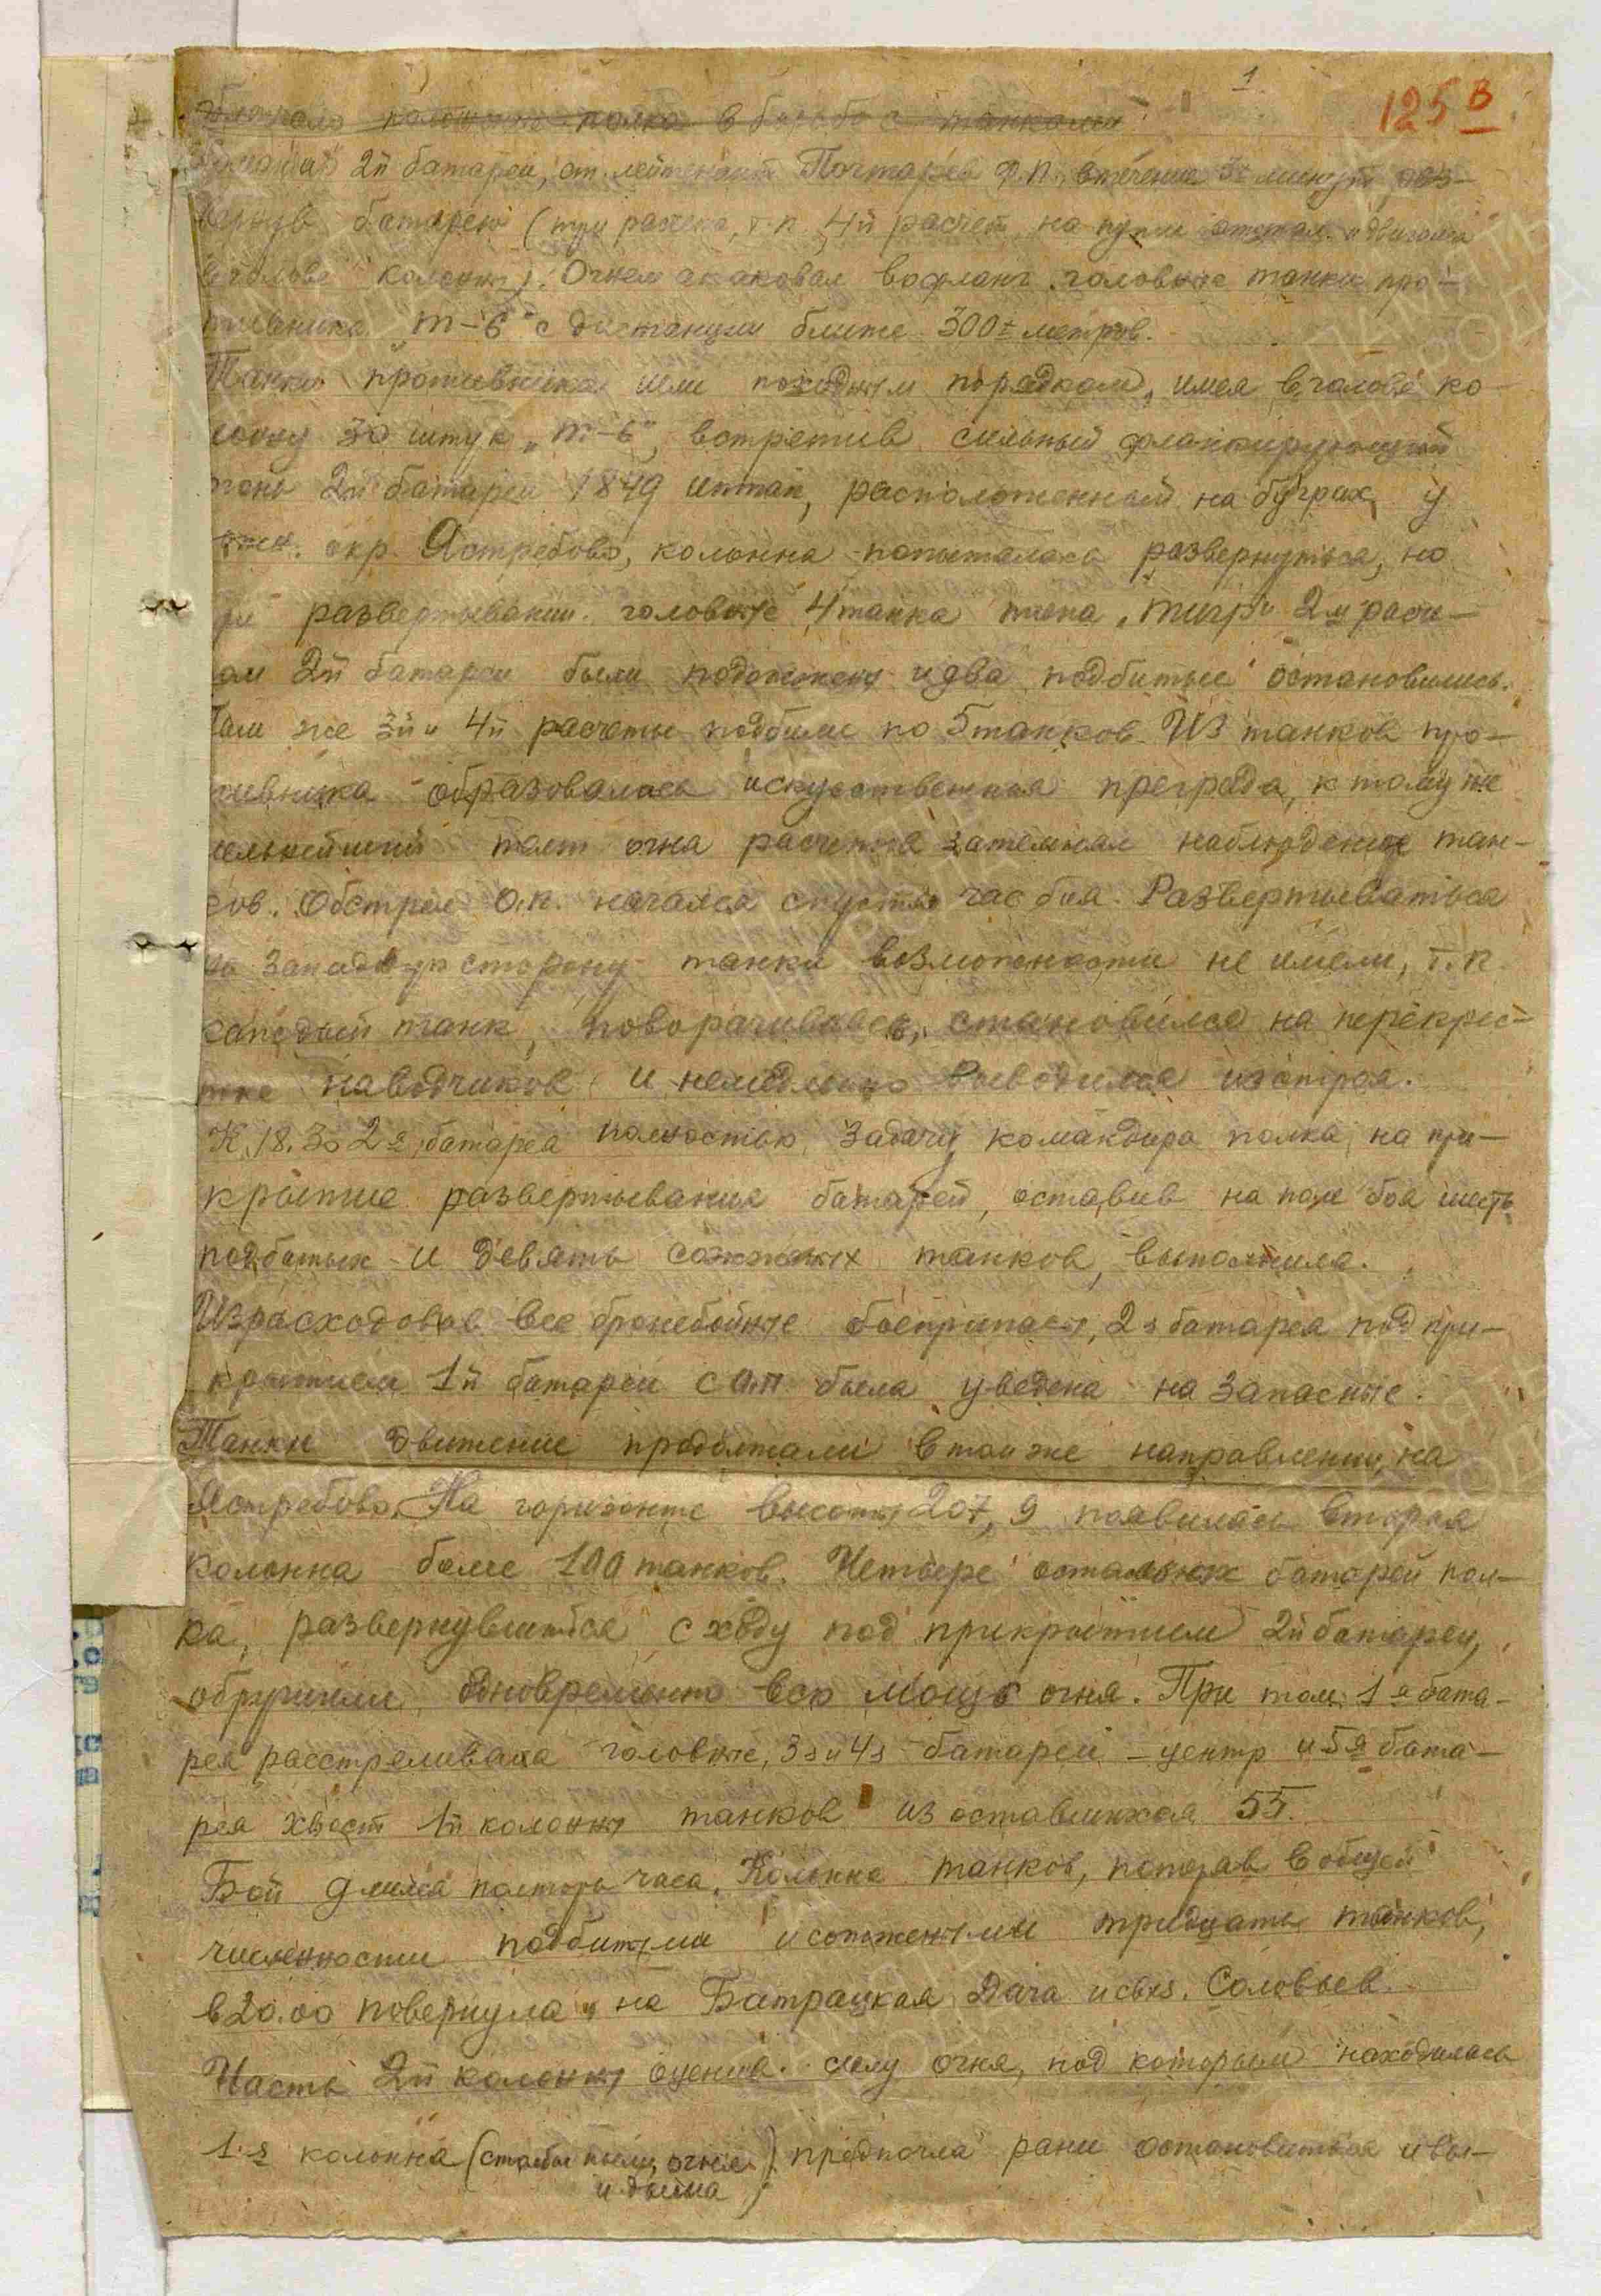 1
125 В
полка в борьбе с танками
2й батареи, ст. лейтенант Почтарёв Ф.П., в течение 3х минут, раз-
вернув батарею (три расчета, т.к. 4й расчет на пути отстал и двигался
в голове колонны). Огнем атаковал во фланг головные танки про-
тивника „Т-6" с дистанции ближе 300± метров.
Танки противника шли походным порядком, имея в голове ко-
лонну 30 штук „Т-6", встретив сильный фланкирующий
огонь 2й батареи 1849 иптап, расположенной на буграх у
окр. Ястребово, колонна попыталась развернуться, но
при развертывании головные 4 танка типа „тигр" 2м расче-
ом 2й батареи были подожжены и два подбитые остановились.
Там же 3й и 4й расчеты подбили по 5 танков. Из танков про-
тивника образовалась искусственная преграда, к тому же
темп огня расчетов затемнял наблюдение тан-
ков. Обстрел о.п. начался спустя час боя. Развертываться
на западную сторону танки возможности не имели, т.к.
каждый танк, поворачиваясь, становился на перекрес-
тке наводчиков и немедленно выводился из строя.
К 18.30 2я батарея полностью задачу командира полка на при-
крытие развертывания батарей, оставив на поле боя шесть
подбитых и девять сожженых танков, выполнила.
Израсходовав все бронебойные боеприпасы, 2я батарея под при-
крытием 1й батареи с о.п. была уведена на запасные.
Танки движение продолжали в том же направлении, на
Ястребово. На горизонте высоты 207,9 появилась вторая
колонна более 100 танков. Четыре остальных батарей пол-
ка, развернувшийся с ходу под прикрытием 2й батареи,
обрушили одновременно всю мощь огня. При том 1я бата-
рея расстреливала головные, 3я и 4я батареи – центр и 5я бата-
рея хвост 1й колонны танков из оставшихся 55.
Бой длился полторы часа. Колонна танков, потеряв в общей
численности подбитыми и сожжеными тридцать танков,
в 20.00 повернула на Батрацкая Дача и свх. Соловьев.
Часть 2й колонны оценив силу огня, под которым находилась
1.я колонна (столбы пыли, огня) предпочла рани остановиться и вы-
и дыма